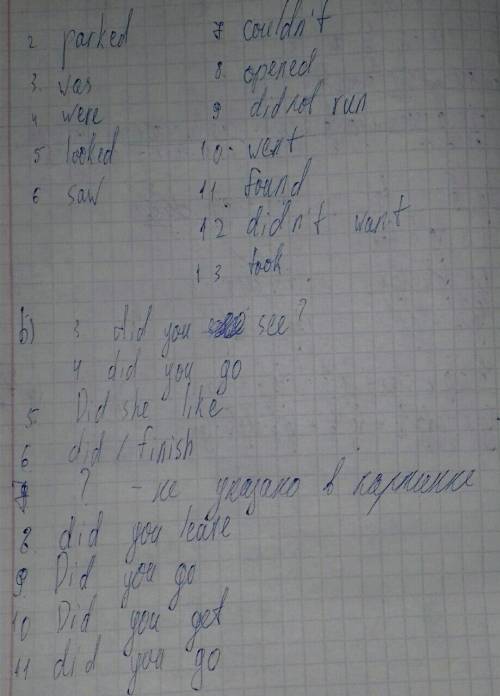 2 parked
3. was
4 were
5 looked
6 saw
7 couldn't
8. opened
9 did not run
10. went
11. found
12 didn't want
13 took
б) 3 did you see?
4 did you go
5 Did she like
6 did I finish
7 ? - не указано в картинке
8 did you leave
9 Did you go
10 Did you get
11 did you go